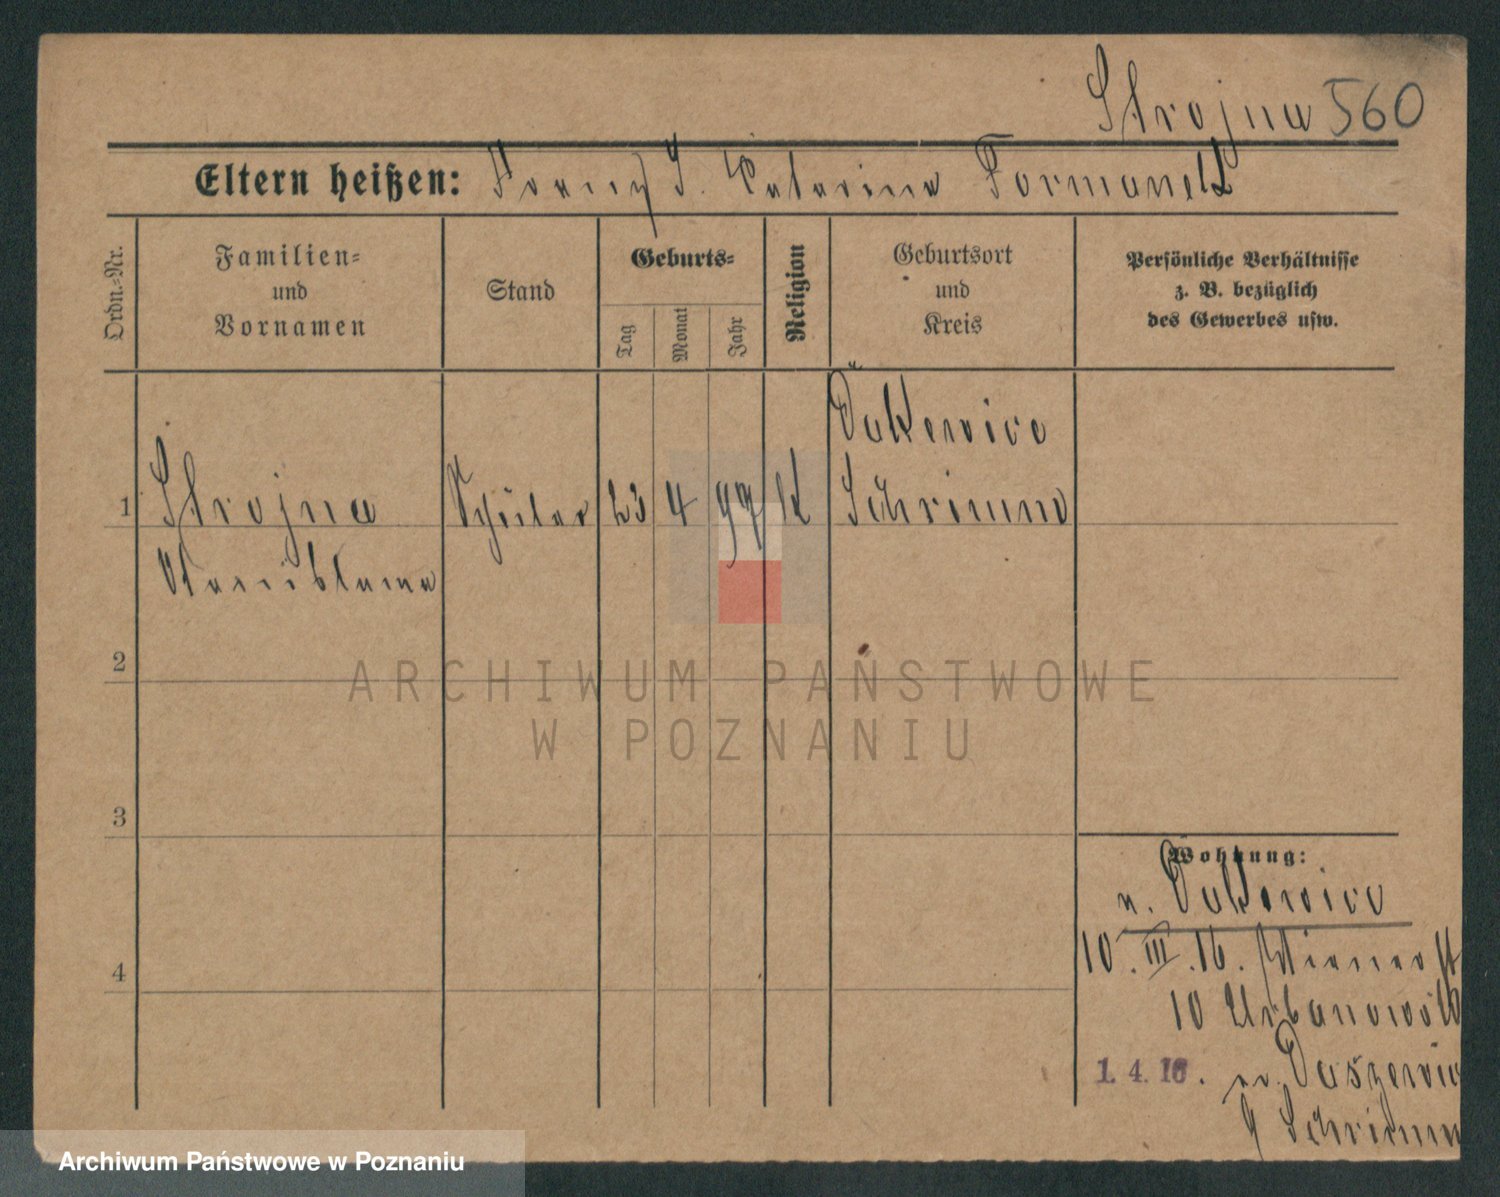 Strojna 560
Eltern heißen: Franz S. Catarina Formanek
Ordn.=Nr.
Familien=
und
Vornamen
Stand
Geburts=
Tag
Monat
Jahr
Religion
Geburtsort
und
Kreis
Persönliche Verhältnisse
z. B. bezüglich
des Gewerbes usw.
1 Strojna Schüler 23 4 97 K
Schrimm
2
ARCHIWUM PAŃSTWOWE
W POZNANIU
3
4
Wohnung:
10. III. 16. Wiener st
10
1. 4. 16.
Schrimm
Archiwum Państwowe w Poznaniu